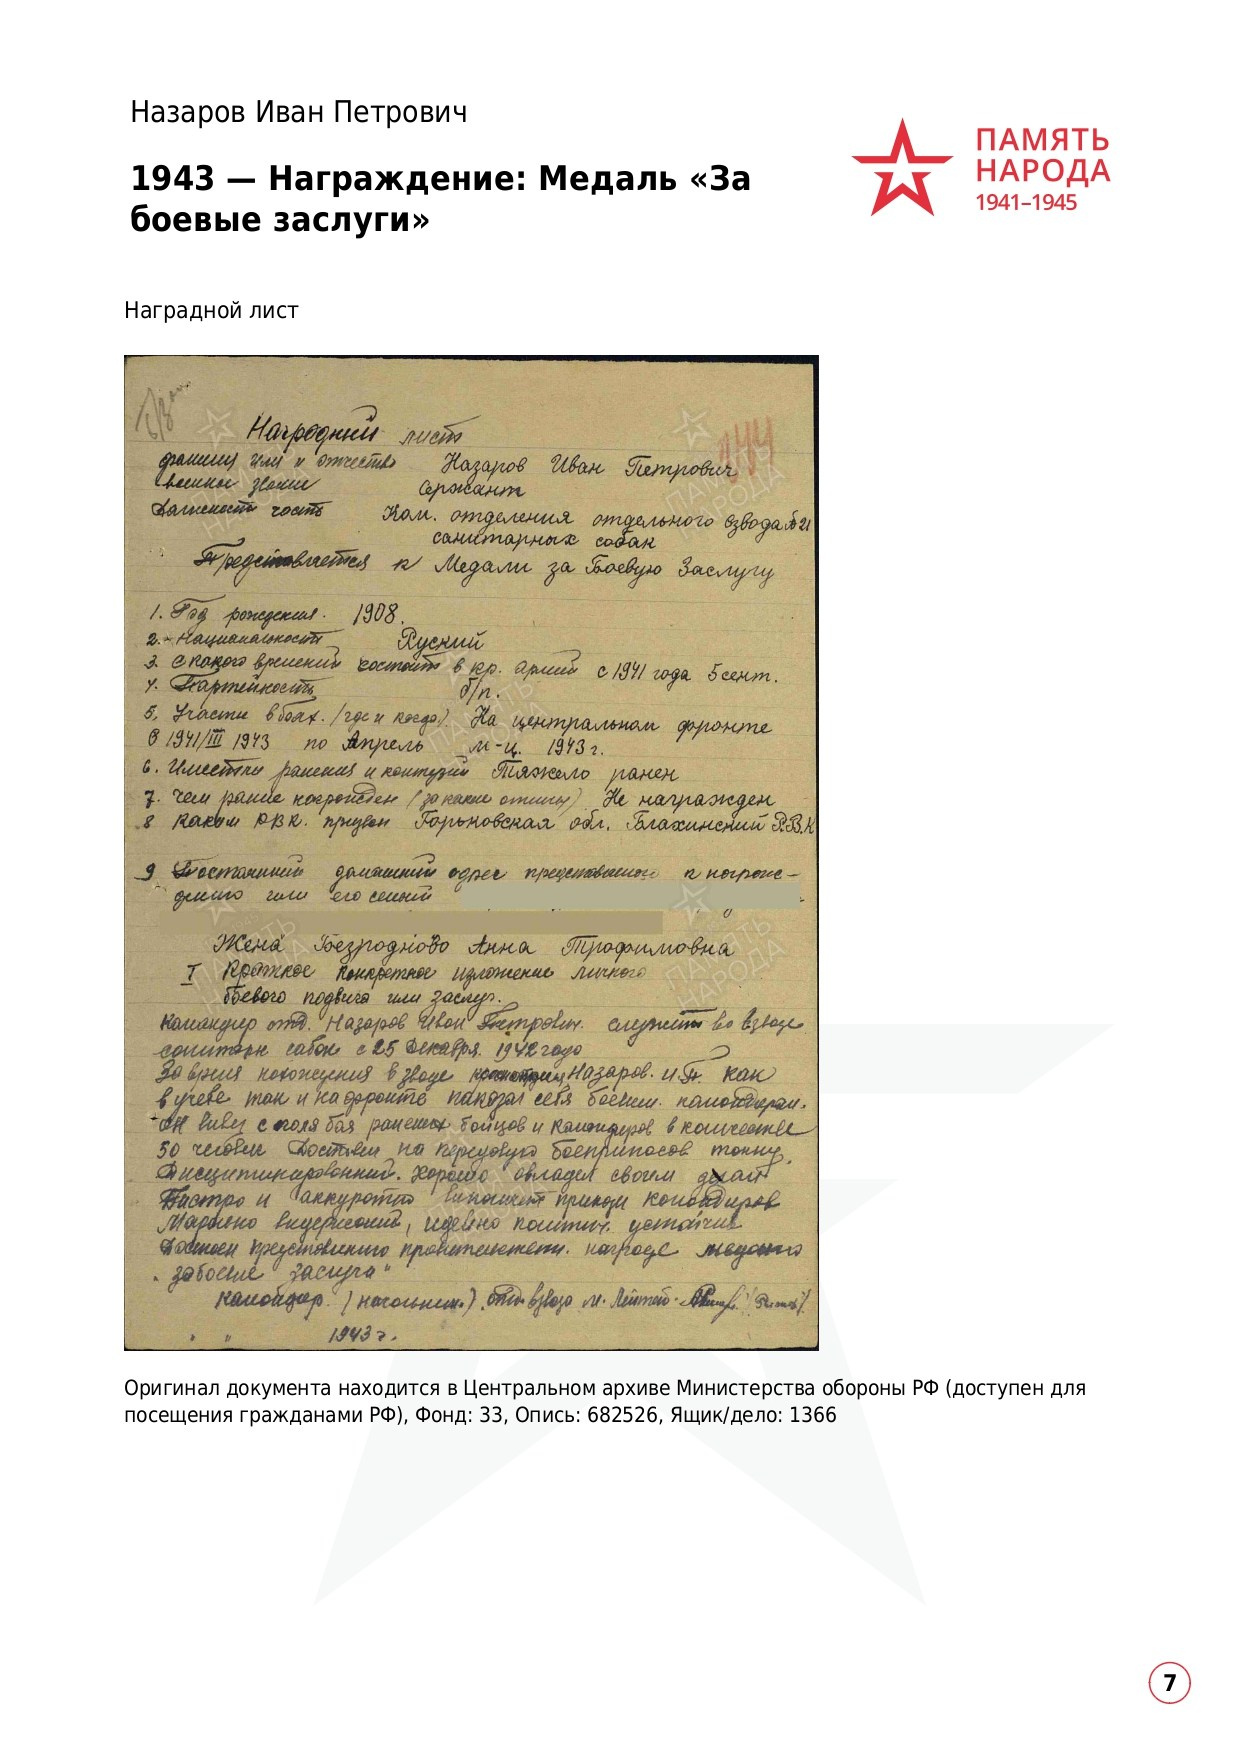 Назаров Иван Петрович
1943 — Награждение: Медаль «За
боевые заслуги»
ПАМЯТЬ
НАРОДА
1941–1945
Наградной лист
Наградний листъ
фамилия имя и отчество Назаров Иван Петрович
военное звание Сержант
Должность часть Ком. отделения отдельного взвода № 21
санитарных собак
Представляется к Медали за Боевую Заслугу
1. Год рождения. 1908.
2. Национальность Руский
3. С какого времений состоит в кр. армий с 1941 года 5 сент.
4. Партейность б/п.
5. Участи в боях. (где и когда) На центральном фронте
в 1941/III 1943 по Апрель м-ц. 1943 г.
6. Имеетли ранения и контузии Тяжело ранен
7. Чем ранше награжден (за какие отличы) Не награжден
8 Каким РВК. призван Горьковская обл. Балахинский Р.В.К
9 Постоянний домашний адрес представляемого к награж-
дению или его семьй
Жена Безродново Анна Трофимовна
I Краткое конкретное изложение личного
боевого подвига или заслуг.
Командир отд. Назаров Иван Петрович. служит во взводе
санитарн собак с 25 Декабря. 1942 года
За время нахождения в взводе Назаров. И.П. как
в учебе так и на фронте паказал себя боевым. командирам.
Он вивез с поля боя раненых бойцов и командиров в количестве
50 человек Доставил на передовую боеприпасов тонну.
Дисциплинированний. Хорошо овладел своим делам
Бистро и аккуратно виполняет приказы командиров
Морально видержаний, идейно политич. устойчив
Достоен представлению правительствен. награде медано
„за боевие заслуга"
Камандир. (начальник). отд. взвода м. Лейтен.
" " 1943 г.
Оригинал документа находится в Центральном архиве Министерства обороны РФ (доступен для
посещения гражданами РФ), Фонд: 33, Опись: 682526, Ящик/дело: 1366
7